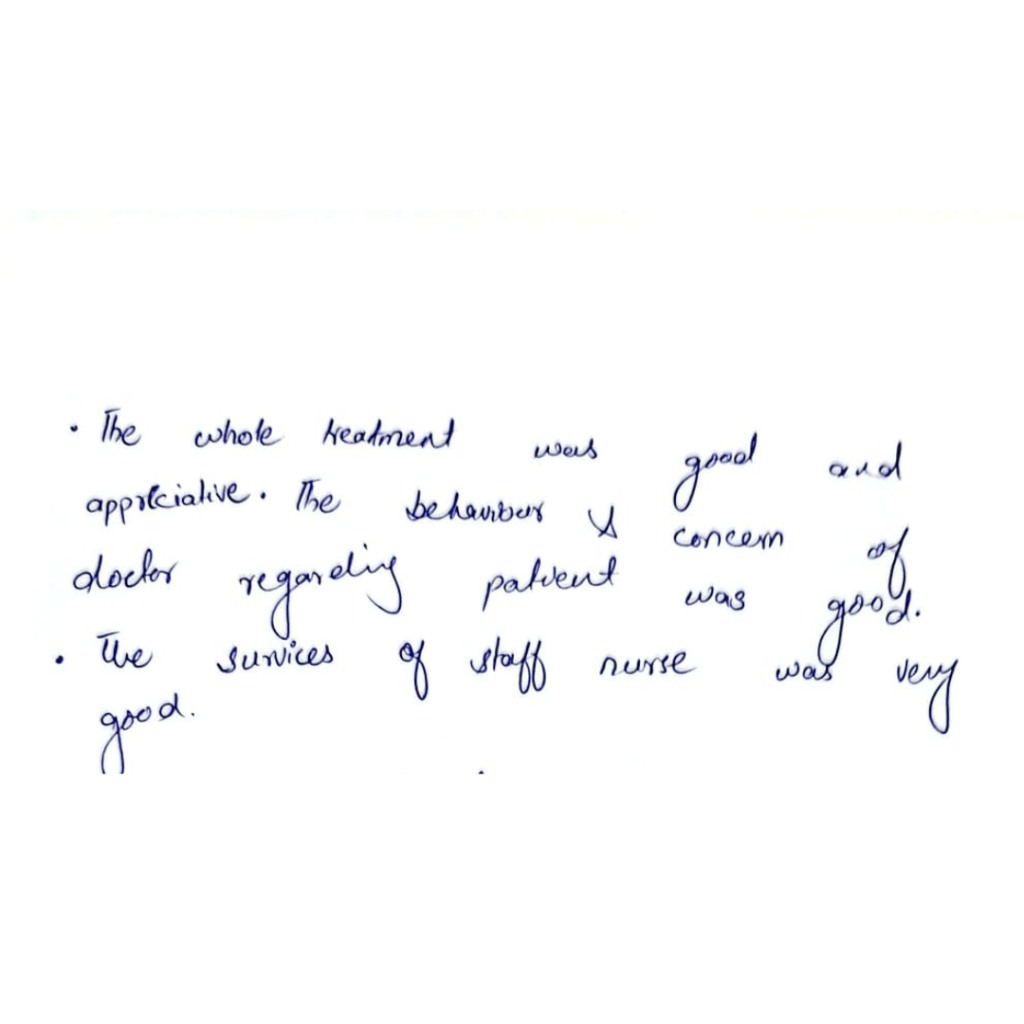 • The whole treatment was good and
appreciative. The behaviour & concern of
doctor regarding patient was good.
• The survices of staff nurse was very
good.